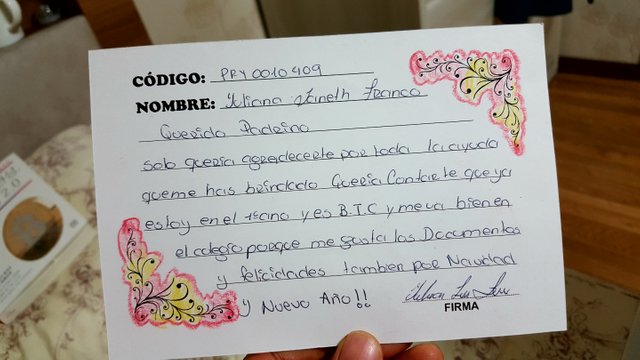 CÓDIGO: PRY0010409
NOMBRE: Yuliana Yineth Franco
Querido Padrino
solo queria agradecerte por toda la ayuda
que me has brindado Queria Contarte que ya
estoy en el 11 año y es B.T.C y me va bien en
el colegio porque me gusta los Documentos
y felicidades tambien por Navidad
y Nuevo Año!!
FIRMA